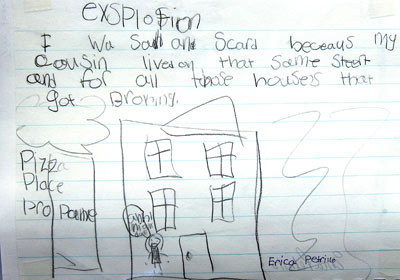 exsplosion
I Wa Sad and Scard beceaus my
cousin lived on that same street
and for all those housers that
got Broning.
Pizza
Place
Pro Paine
Erica Petrillo